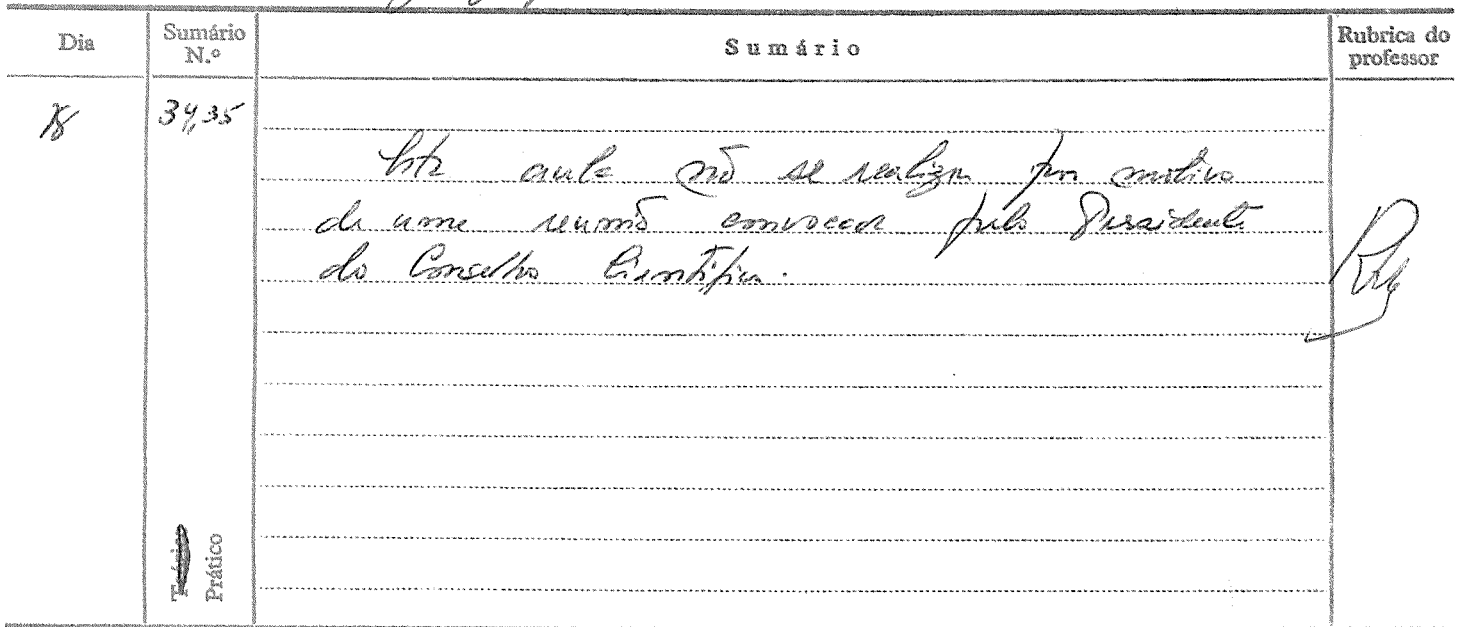 Dia
Sumário N.º
Sumário
Rubrica do professor
34,35
Esta aula não se realizou por motivo
de uma reunião convocada pelo Presidente
do Conselho Científico.
Teórico
Prático